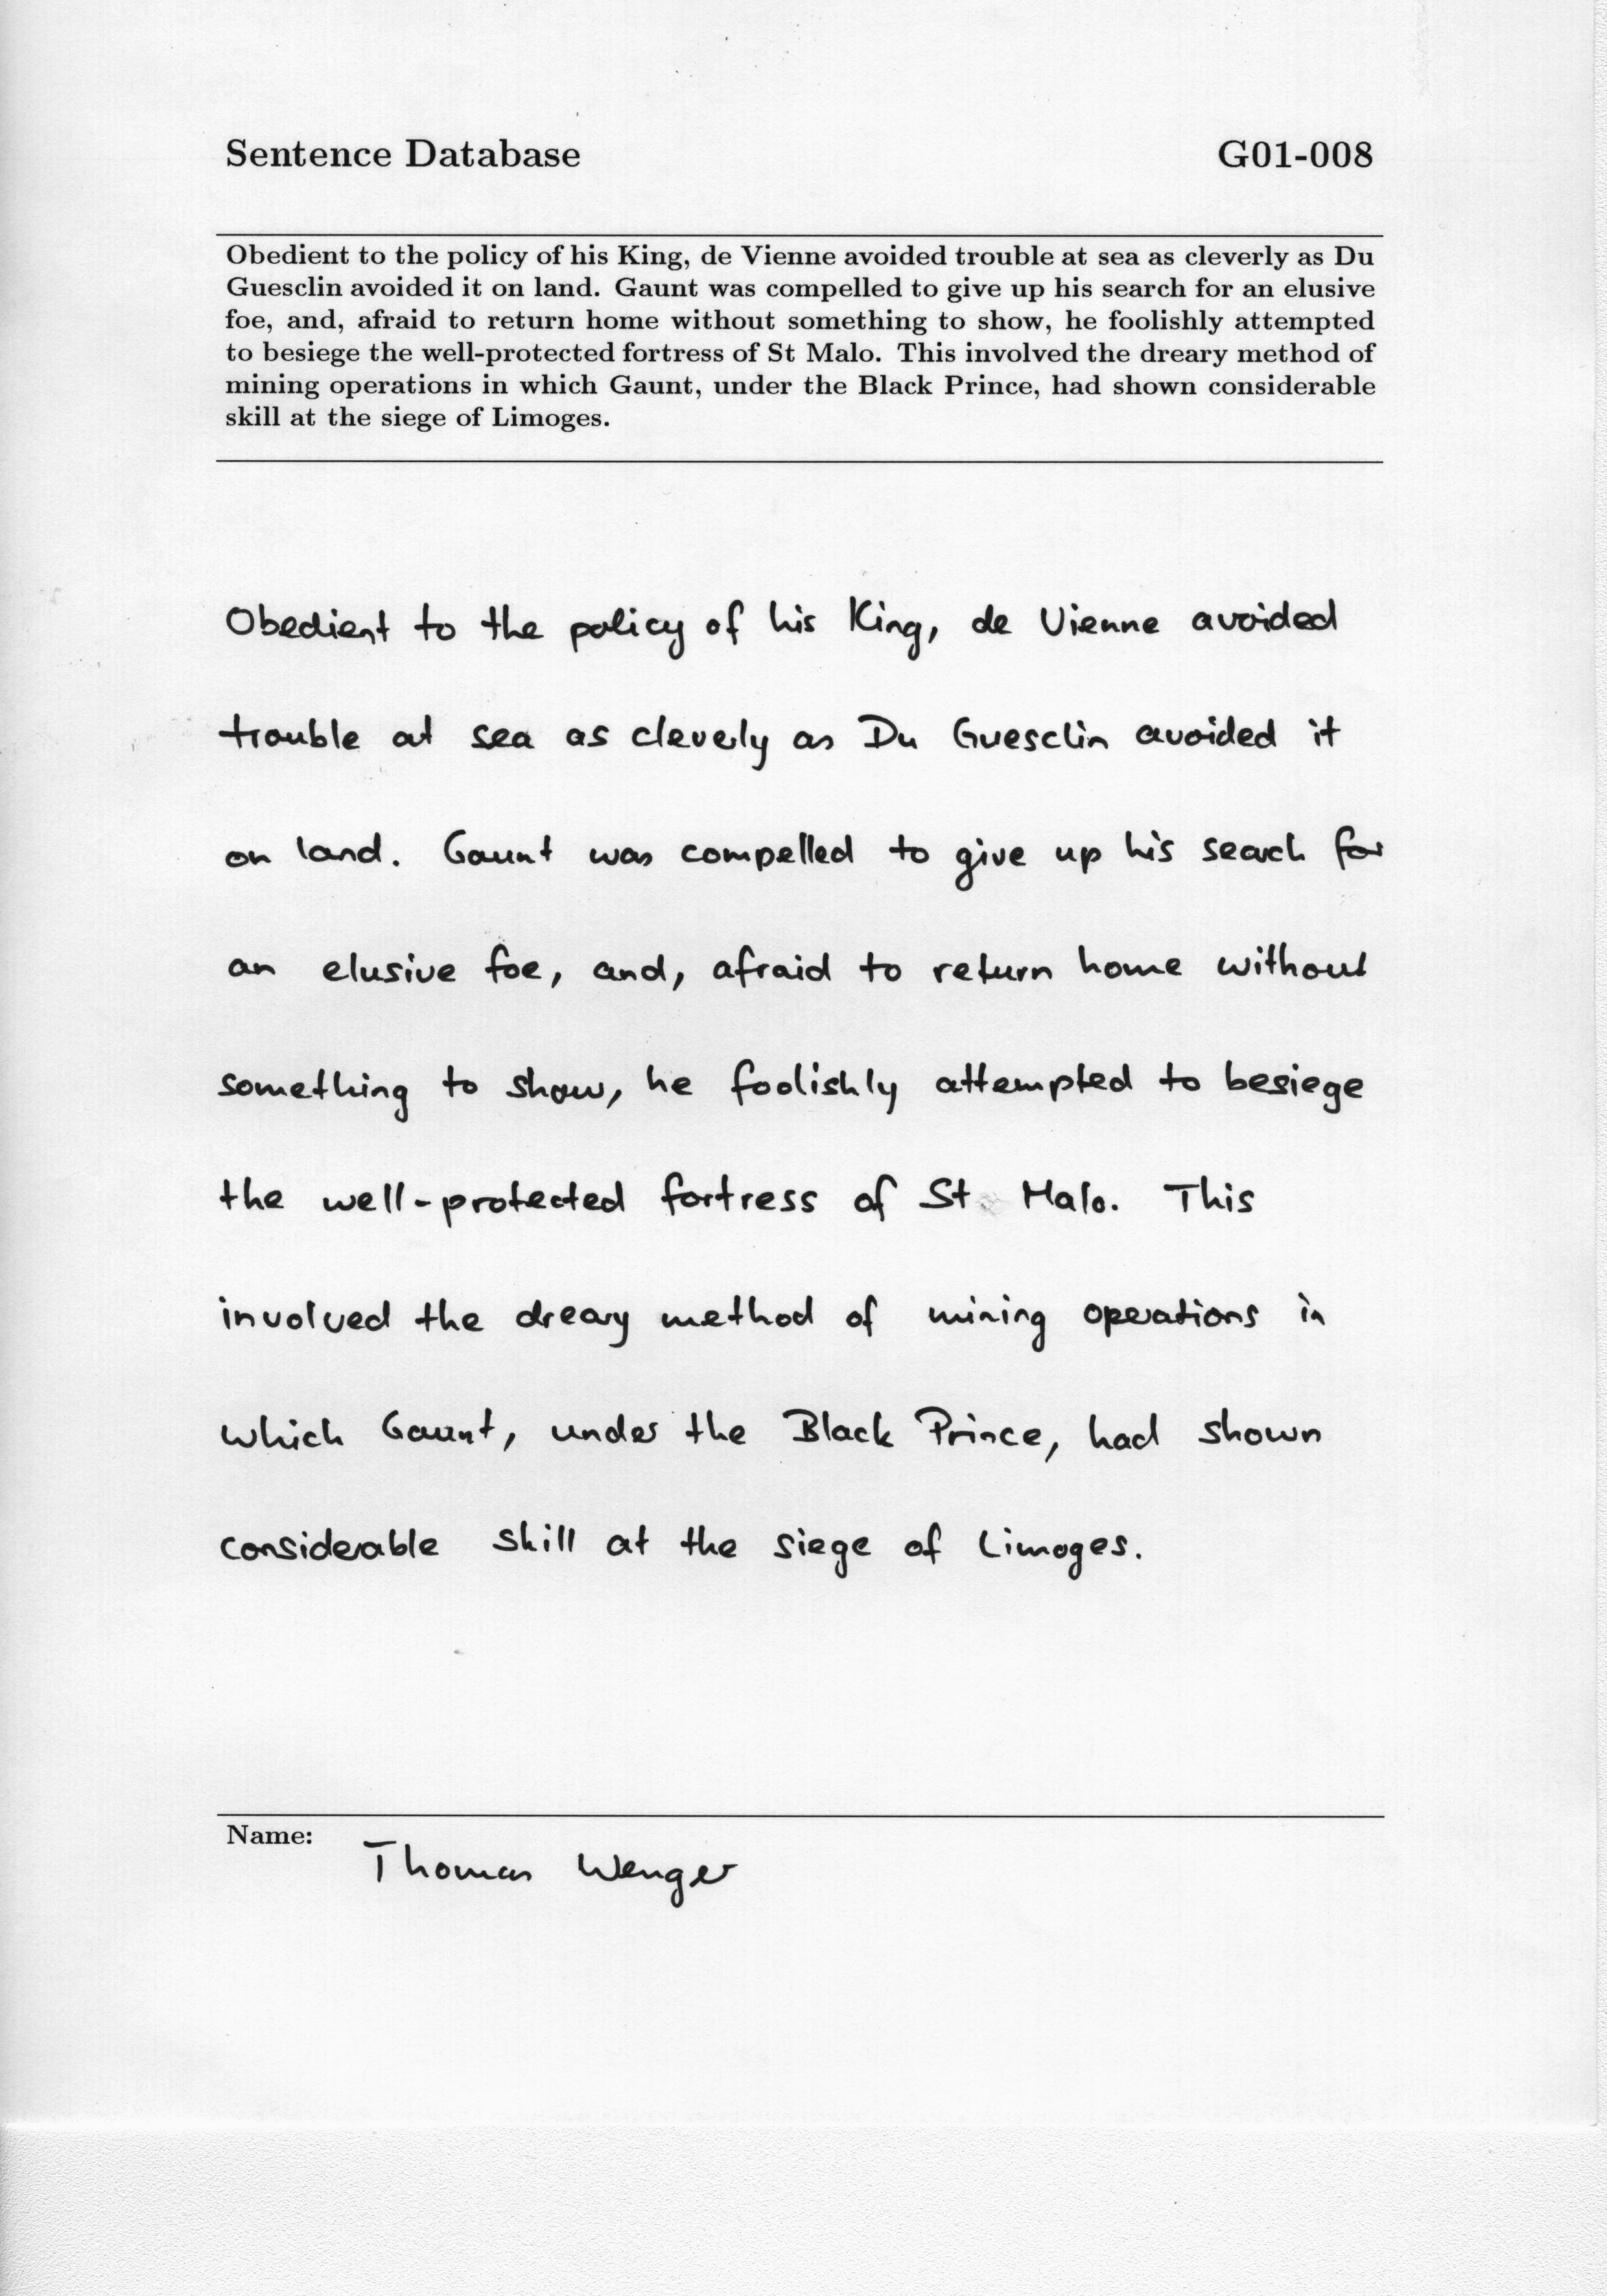 Sentence Database G01-008
Obedient to the policy of his King, de Vienne avoided trouble at sea as cleverly as Du
Guesclin avoided it on land. Gaunt was compelled to give up his search for an elusive
foe, and, afraid to return home without something to show, he foolishly attempted
to besiege the well-protected fortress of St Malo. This involved the dreary method of
mining operations in which Gaunt, under the Black Prince, had shown considerable
skill at the siege of Limoges.
Obedient to the policy of his King, de Vienne avoided
trouble at sea as cleverly as Du Guesclin avoided it
on land. Gaunt was compelled to give up his search for
an elusive foe, and, afraid to return home without
something to show, he foolishly attempted to besiege
the well-protected fortress of St Malo. This
involved the dreary method of mining operations in
which Gaunt, under the Black Prince, had shown
considerable skill at the siege of Limoges.
Name: Thomas Wenger